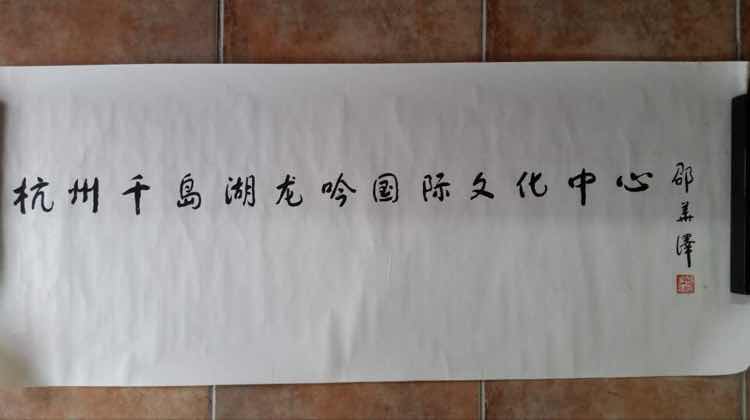 杭州千岛湖龙吟国际文化中心
邵华泽